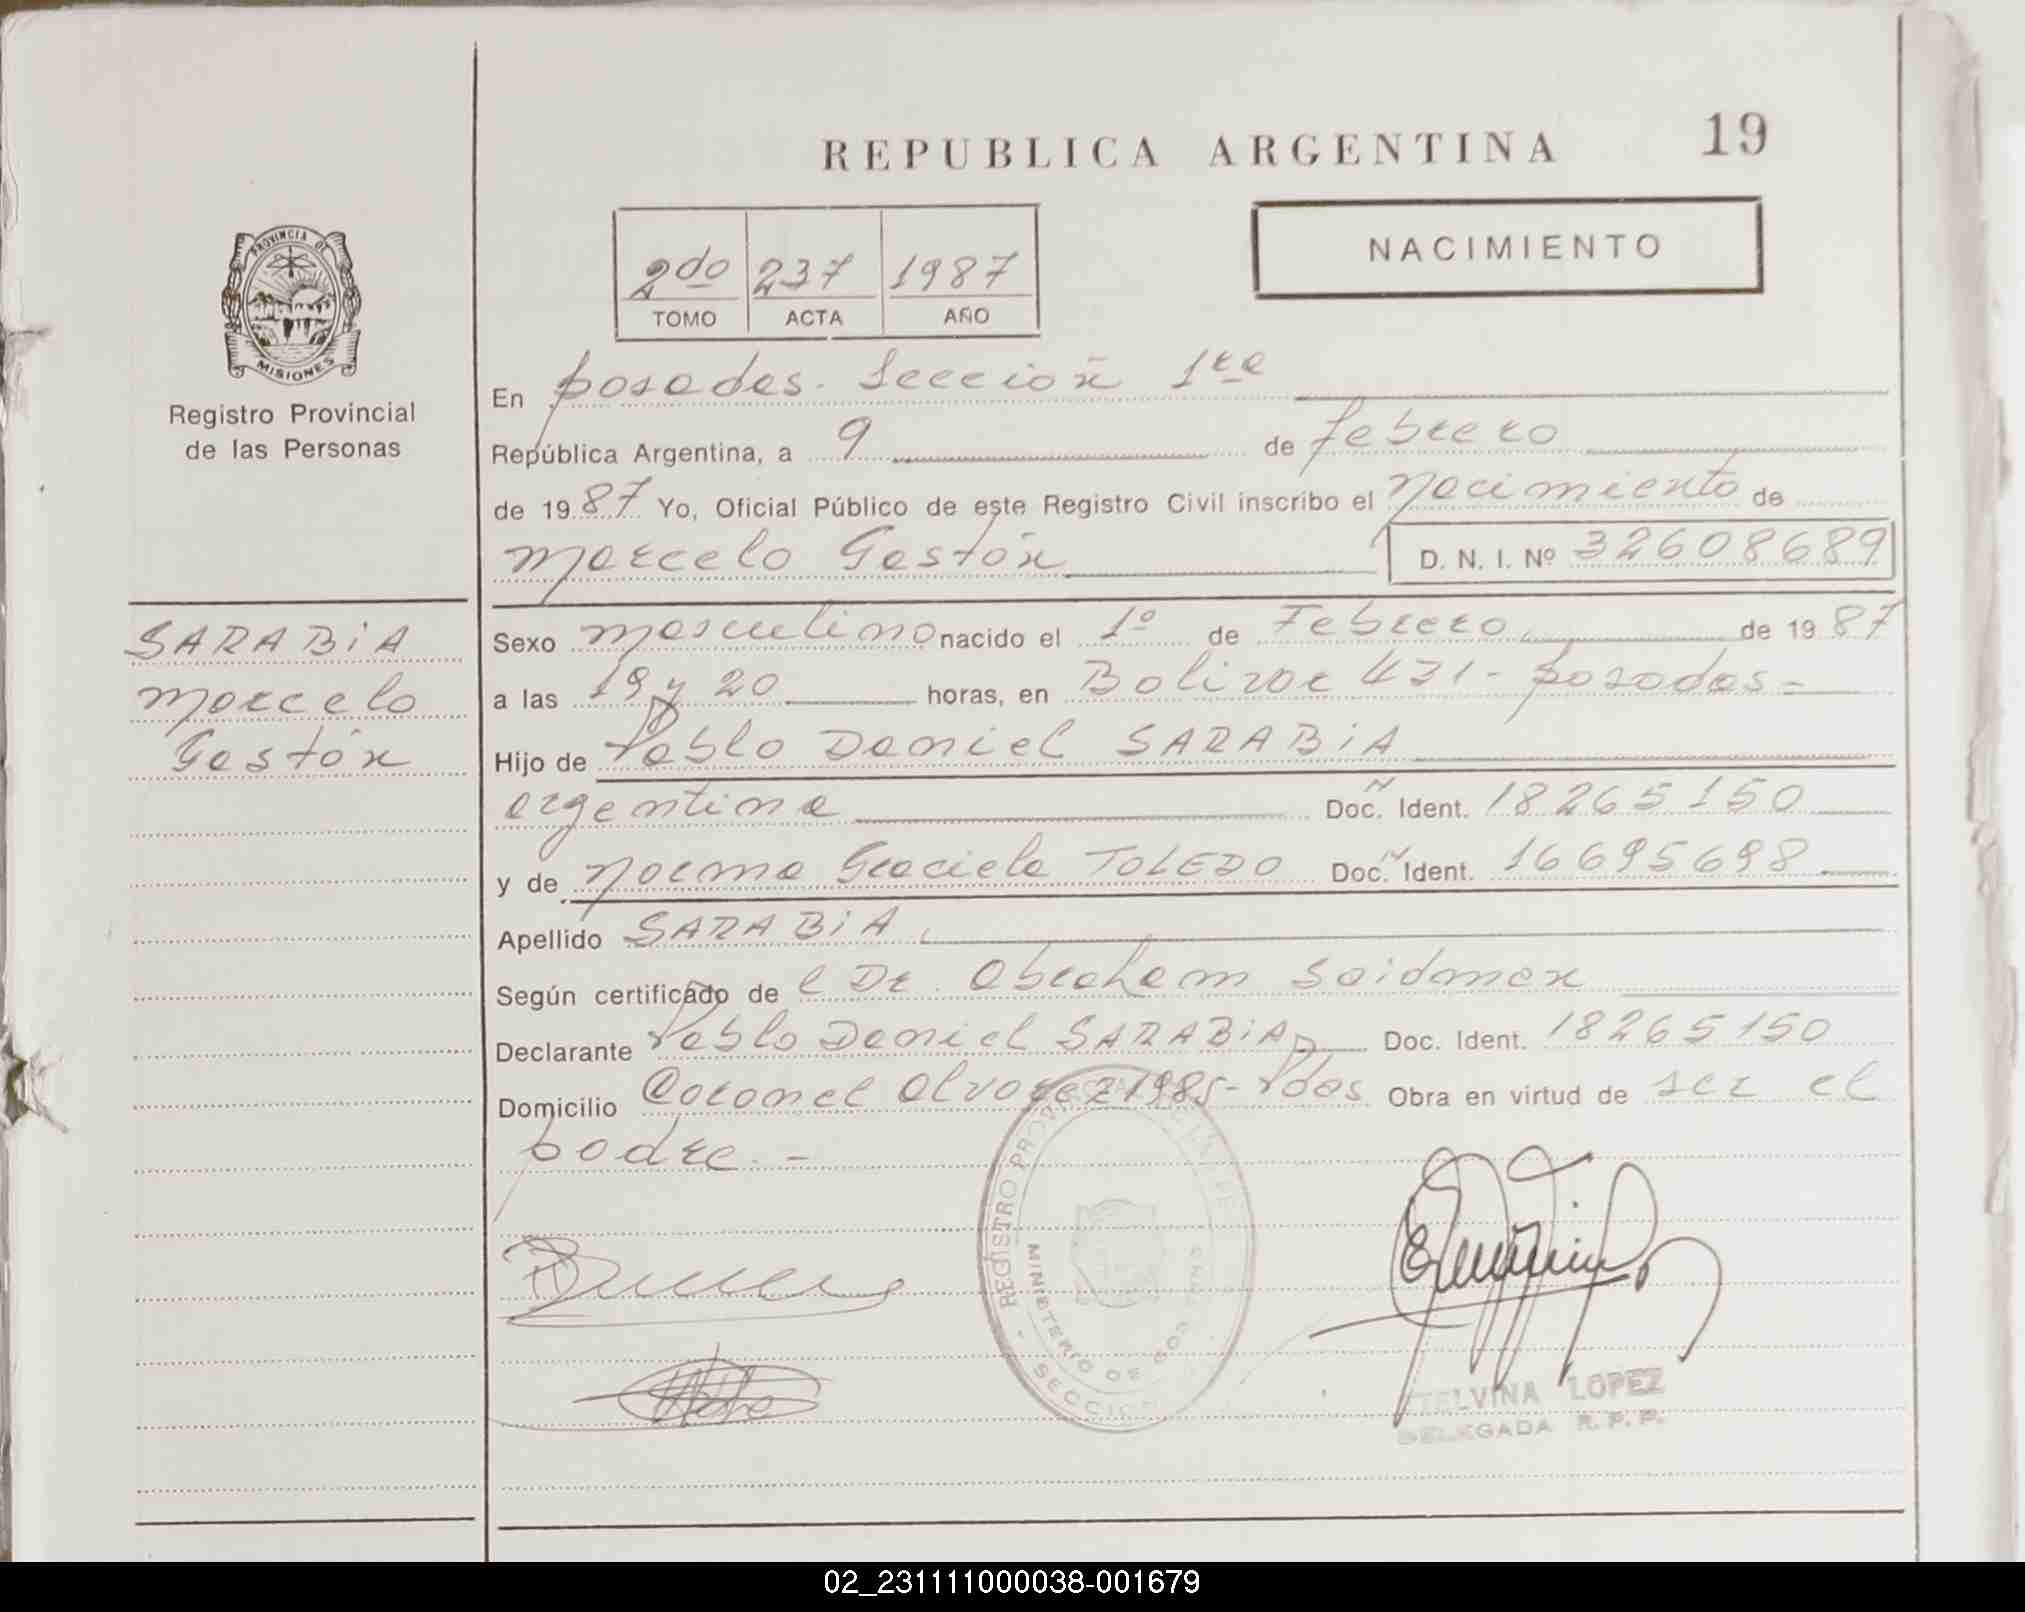 REPUBLICA ARGENTINA 19
NACIMIENTO
2do 237 1987
TOMO ACTA AÑO
PROVINCIA DE MISIONES
Registro Provincial
de las Personas
SARABiA
Marcelo
Gastón
En posadas. Sección 1ra
República Argentina, a 9 de febrero
de 1987 Yo, Oficial Público de este Registro Civil inscribo el nacimiento de
Marcelo Gastón D. N. I. Nº 32608689
Sexo masculino nacido el 1º de Febrero de 1987
a las 19 y 20 horas, en Bolivar 431 - posadas =
Hijo de Pablo Daniel SARABiA
argentina Doc. Ident. 18265150
y de Norma Graciela TOLEDO Doc. Ident. 16695698
Apellido SARABiA
Según certificado de l Dr. Abraham Saidman
Declarante Pablo Daniel SARABiA Doc. Ident. 18265150
Domicilio Coronel Alvarez 1985 - Pdas Obra en virtud de ser el
padre. -
REGISTRO PROVINCIAL DE LAS PE
MINISTERIO DE GOB
SECCION
TELVINA LOPEZ
DELEGADA R. P. P.
02_231111000038-001679